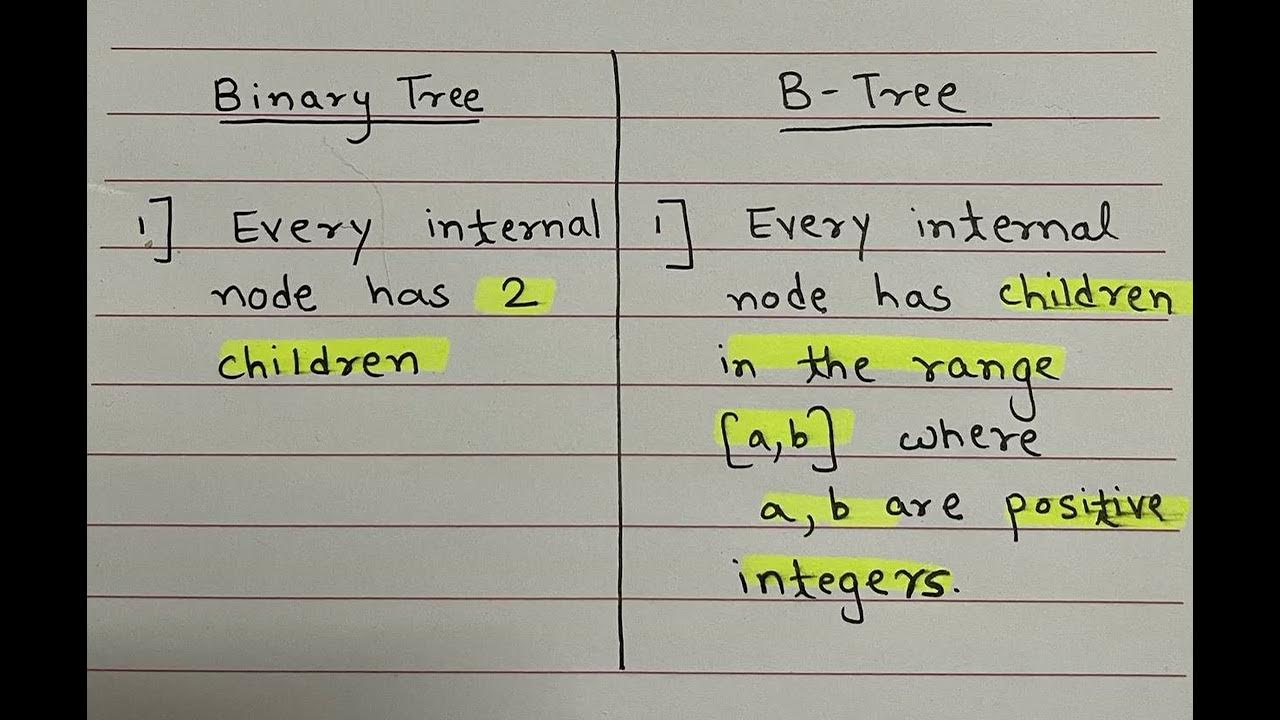 Binary Tree
1] Every internal
node has 2
children
B-Tree
1] Every internal
node has children
in the range
[a,b] where
a, b are positive
integers.